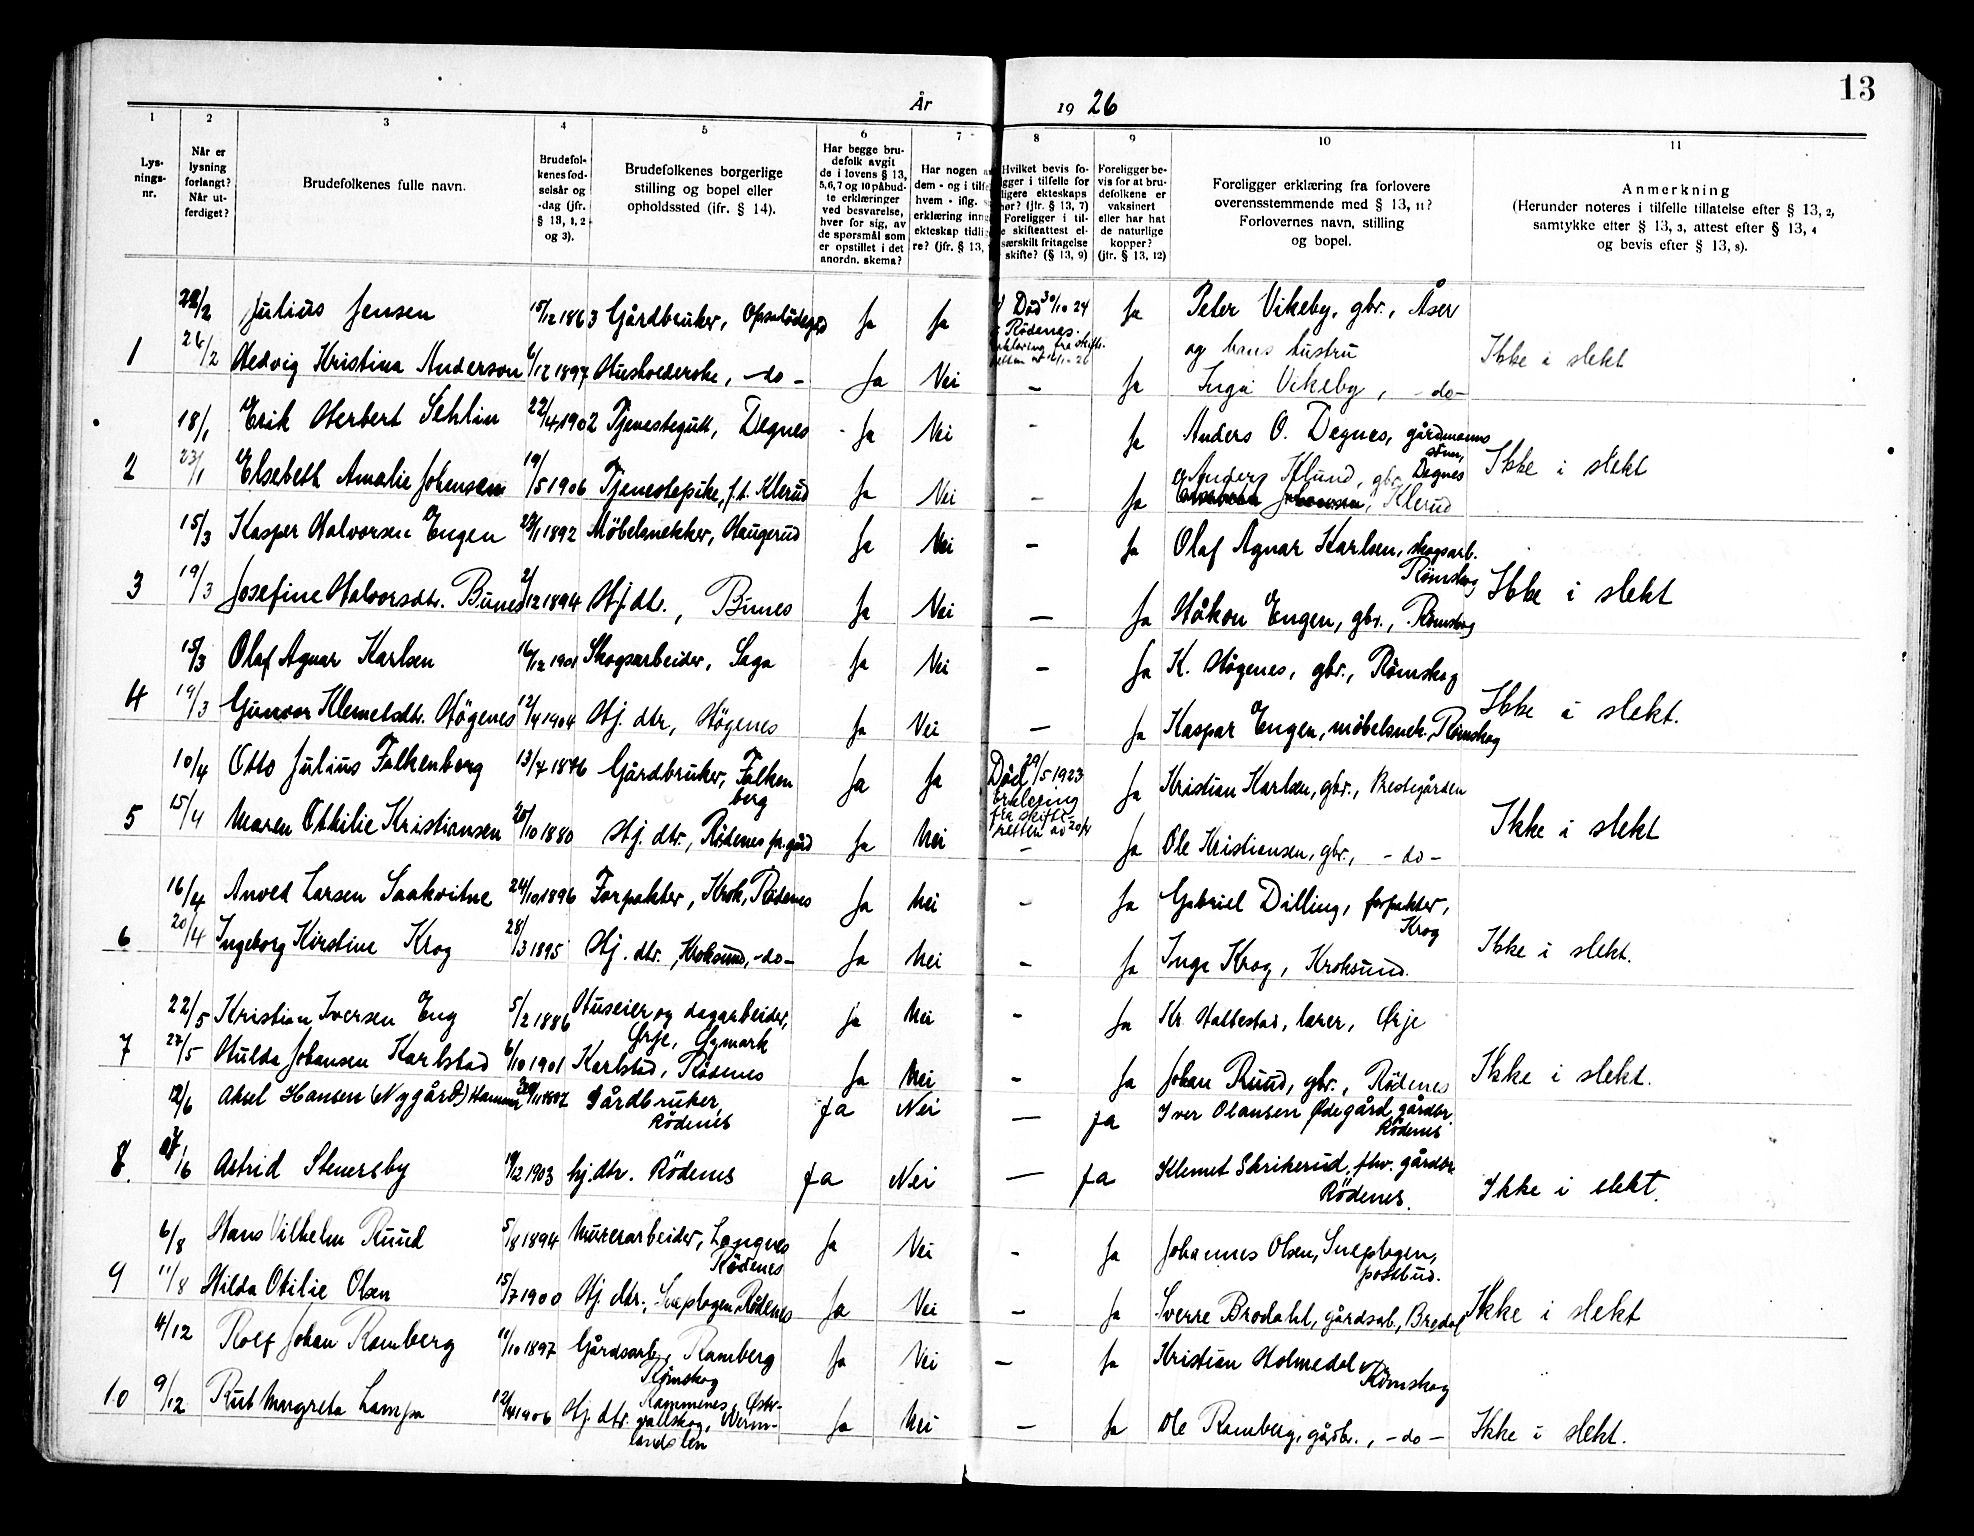 13
År 1926
1 2 3 4 5 6 7 8 9 10 11
Lysningsnr.
Når er lysning forlangt? Når utferdiget?
Brudefolkenes fulle navn.
Brudefolkenes fødselsår og -dag (jfr. § 13, 1, 2 og 3).
Brudefolkenes borgerlige stilling og bopel eller opholdssted (ifr. § 14).
Har begge brudefolk avgit de i lovens § 13, 5, 6, 7 og 10 påbudte erklæringer ved besvarelse, hver for sig, av de spørsmål som er opstillet i det anordn. skema?
Har nogen
dem - og i tilf
hvem - iflg.
erklæring inn
ekteskap tidli
re? (jfr. § 13,
Hvilket bevis fo-
gger i tilfelle for
ligere ekteskaps
hør? (jfr. § 13, 7)
Foreligger i til-
e skifteattest el-
særskilt fritagelse
skifte? (§ 13, 9)
Foreligger bevis for at brudefolkene er vaksinert eller har hat de naturlige kopper? (jfr. § 13, 12)
Foreligger erklæring fra forlovere overensstemmende med § 13, 11? Forlovernes navn, stilling og bopel.
Anmerkning
(Herunder noteres i tilfelle tillatelse efter § 13, 2,
samtykke efter § 13, 3, attest efter § 13, 4
og bevis efter § 13, 8).
22/2 Julius Jensen 15/12 1863 Gårdbruker, Ja Ja Død 30/10 24 i Rödenes. Ja Peter Vikeby, gbr., Åser
og hans hustru
1 26/2 Hedvig Kristina Anderson 6/12 1897 Husholderske, -do- Ja Nei - Ja Inga Vikeby, -do- Ikke i slekt
18/1 Erik Herbert Sehlin 22/4 1902 Tjenestegutt, Degnes Ja Nei - Ja Anders O. Degnes, gårdmanns sönn, Degnes
2 23/1 Elsebeth Amalie Johensen 19/5 1906 Tjenestepike, f.t. Klerud Ja Nei - Ja Anders Klund, gbr. Klerud Ikke i slekt
15/3 Kasper Halvorsen Engen 1892 Møbelsnekker, Haugerud Ja Nei - Ja Olaf Agnar Karlsen, skogsarb. Rømskog
3 19/3 Josefine Halvorsdtr. Bunes 2/12 1894 Hj.dtr., Bunes Ja Nei - Ja Håkon Engen, gbr., Rømskog Ikke i slekt
15/3 Olaf Agnar Karlsen 16/12 1901 Skogsarbeider, Saga Ja Nei - Ja K. Högenes, gbr., Rømskog
4 19/3 Gunvor Klemetsdtr. Högenes 12/4 1904 Hj. dtr, Högenes Ja Nei - Ja Kaspar Engen, møbelsnek. Rømskog Ikke i slekt.
10/4 Otto Julius Falkenberg 13/7 1876 Gårdbruker, Falkenberg Ja Ja Död 29/5 1923 Erklæring fra skifteretten av 20/4 Ja Kristian Karlsen, gbr., Prestegården
5 15/4 Maren Othilie Kristiansen 20/10 1880 Hj. dtr., Rödenes pr.gård Ja Nei - Ja Ole Kristiansen, gbr., -do- Ikke i slekt
16/4 Anved Larsen Saakvitne 24/10 1896 Forpakter, Krok, Rödenes Ja Nei - Ja Gabriel Dilling, forpakter, Krog
6 20/4 Ingeborg Kirstine Krog 28/3 1895 Hj. dtr., Kroksund, -do- Ja Nei - Ja Inga Krog, Kroksund. Ikke i slekt.
22/5 Kristian Iversen Eng 5/2 1886 Huseier og dagarbeider, Ørje, Øymark Ja Nei - Ja Kr. Halbestad, lærer, Ørje
7 27/5 Hulda Johansen Karlstad 6/10 1901 Karlstad, Rödenes Ja Nei - Ja Johan Ruud, gbr., Rödenes Ikke i slekt.
12/6 Aksel Hansen (Nygård) Gårdbruker, Rödenes Ja Nei - Ja Iver Olausen Ödegård, gårdbr. Rödenes
8. /6 Astrid Stenersby 19/12 1903 hj.dtr. Rödenes Ja Nei - Ja Klemet Skrikerud, fhv. gårdbr. Rödenes. Ikke i slekt.
6/8 Hans Vilhelm Ruud 5/8 1894 Murerarbeider, Langnes Rödenes Ja Nei - Ja Johannes Olsen, Sneplogen, postbud.
9 11/8 Hilda Otilie Olsen 15/7 1900 Hj. dtr., Sneplogen, Rödenes Ja Nei - Ja Sverre Brodahl, gårdsarb., Ikke i slekt
4/12 Rolf Johan Ramberg 11/10 1897 Gårdsarb., Ramberg Rømskog Ja Nei - Ja Kristian Holmedal, Rømskog
10 9/12 Rut Margreta Lampa 12/4 1906 Hj. dtr. Rammenes, Östervallskog, Vermlandslen Ja Nei - Ja Ole Ramberg, gårdbr., -do- Ikke i slekt.